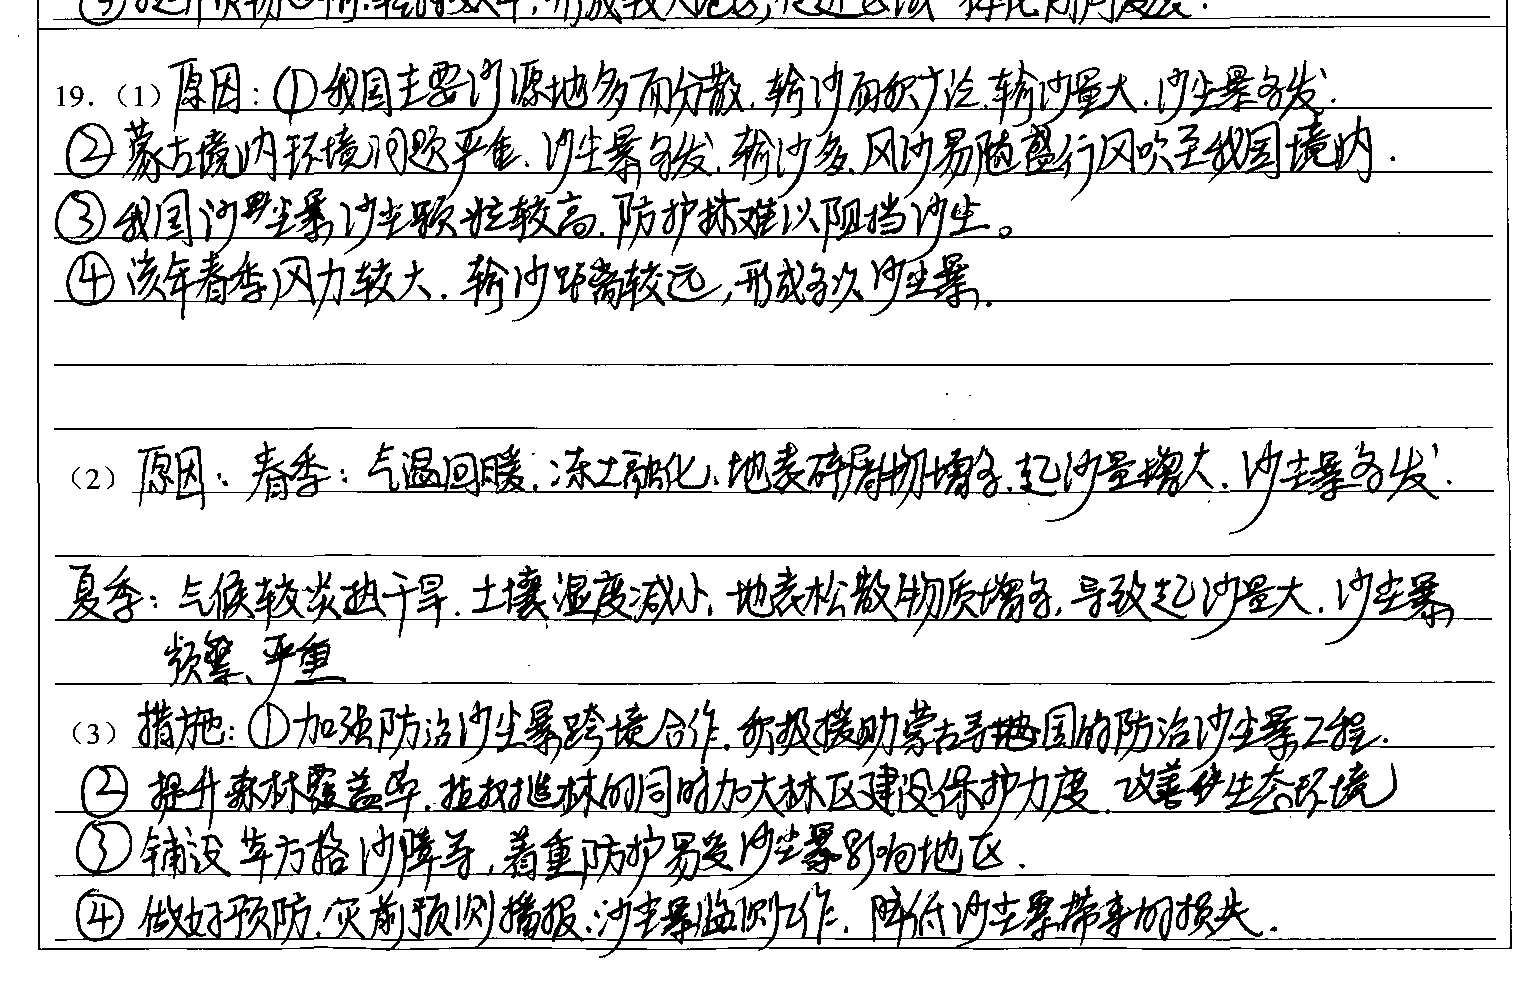 19.（1）原因：①我国主要沙源地多而分散，输沙面积广泛，输沙量大，沙尘暴多发．
②蒙古境内环境问题严重，沙尘暴多发，输沙多，风沙易随盛行风吹至我国境内．
③我国沙尘暴沙尘颗粒较高，防护林难以阻挡沙尘。
④该年春季风力较大，输沙距离较远，形成多次沙尘暴．
（2）原因：春季：气温回暖，冻土融化，地表碎屑物增多，起沙量增大，沙尘暴多发．
夏季：气候较炎热干旱，土壤湿度减小，地表松散物质增多，导致起沙量大，沙尘暴
频繁、严重
（3）措施：①加强防治沙尘暴跨境合作，积极援助蒙古等国的防治沙尘暴工程．
②提升森林覆盖率，植树造林的同时加大林区建设保护力度，改善生态环境
③铺设草方格沙障等，着重防护易受沙尘暴影响地区．
④做好预防，灾前预测播报，沙尘暴监测工作，降低沙尘暴带来的损失．